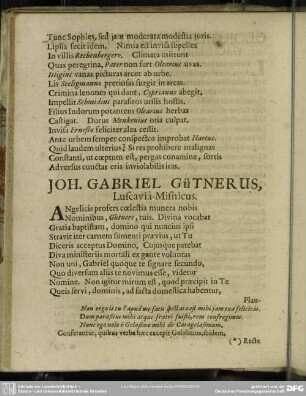 Tunc Sophies, sed jam moderata modestia juris.
Lipsia fecit idem. Nimia est invisa supellex
In villis Rechenbergero. Climata mittunt
Quas peregrina, Pater non fert Olearius uvas.
Ittigini vanas picturas arcet ab urbe.
Lis Seeligmanno preciosus surgit in arcas.
Crimina lenones qui dant, Cyprianus abegit,
Impellit Schmidius parasitos utilis hostis.
Filius Indorum potantem Olearius herbas
Castigat. Durus Menkenius otia culpat,
Invisa Ernesto feliciter alea cessit.
Ante urbem semper conspectos improbat Hortos.
Quid laudem ulterius? Si res prohibere malignas
Constanti, ut cœptum est, pergas conamine, fortis
Adversus cunctas eris inviolabilis iras.
JOH. GABRIEL GüTNERUS,
Luscaviâ-Misnicus.
Angelicis profers cœlestia munera nobis
Nominibus, Gütnere, tuis. Divina vocabat
Gratia baptistam, domino qui nuncius ipsi
Stravit iter carnem sumenti prævius, ut Tu
Diceris acceptus Domino, Cujusque patebat
Diva ministeriis mortali ex gente voluntas
Non uni, Gabriel quoque te signare secundo,
Quo diversum aliis te novimus esse, videtur
Nomine. Non igitur mirum est, quod præcipit in Te
Queis servi, dominis, ad facta domestica habentur,
Plau-
Dum parasitus mihi atque fratri fuisti, rem confregimus.
Nunc ego nolo è Gelasimo mihi fir Catagelasimum,
Conferantur, quibus verba hæc excepit Gelasimus, ibidem,
(*) Recte